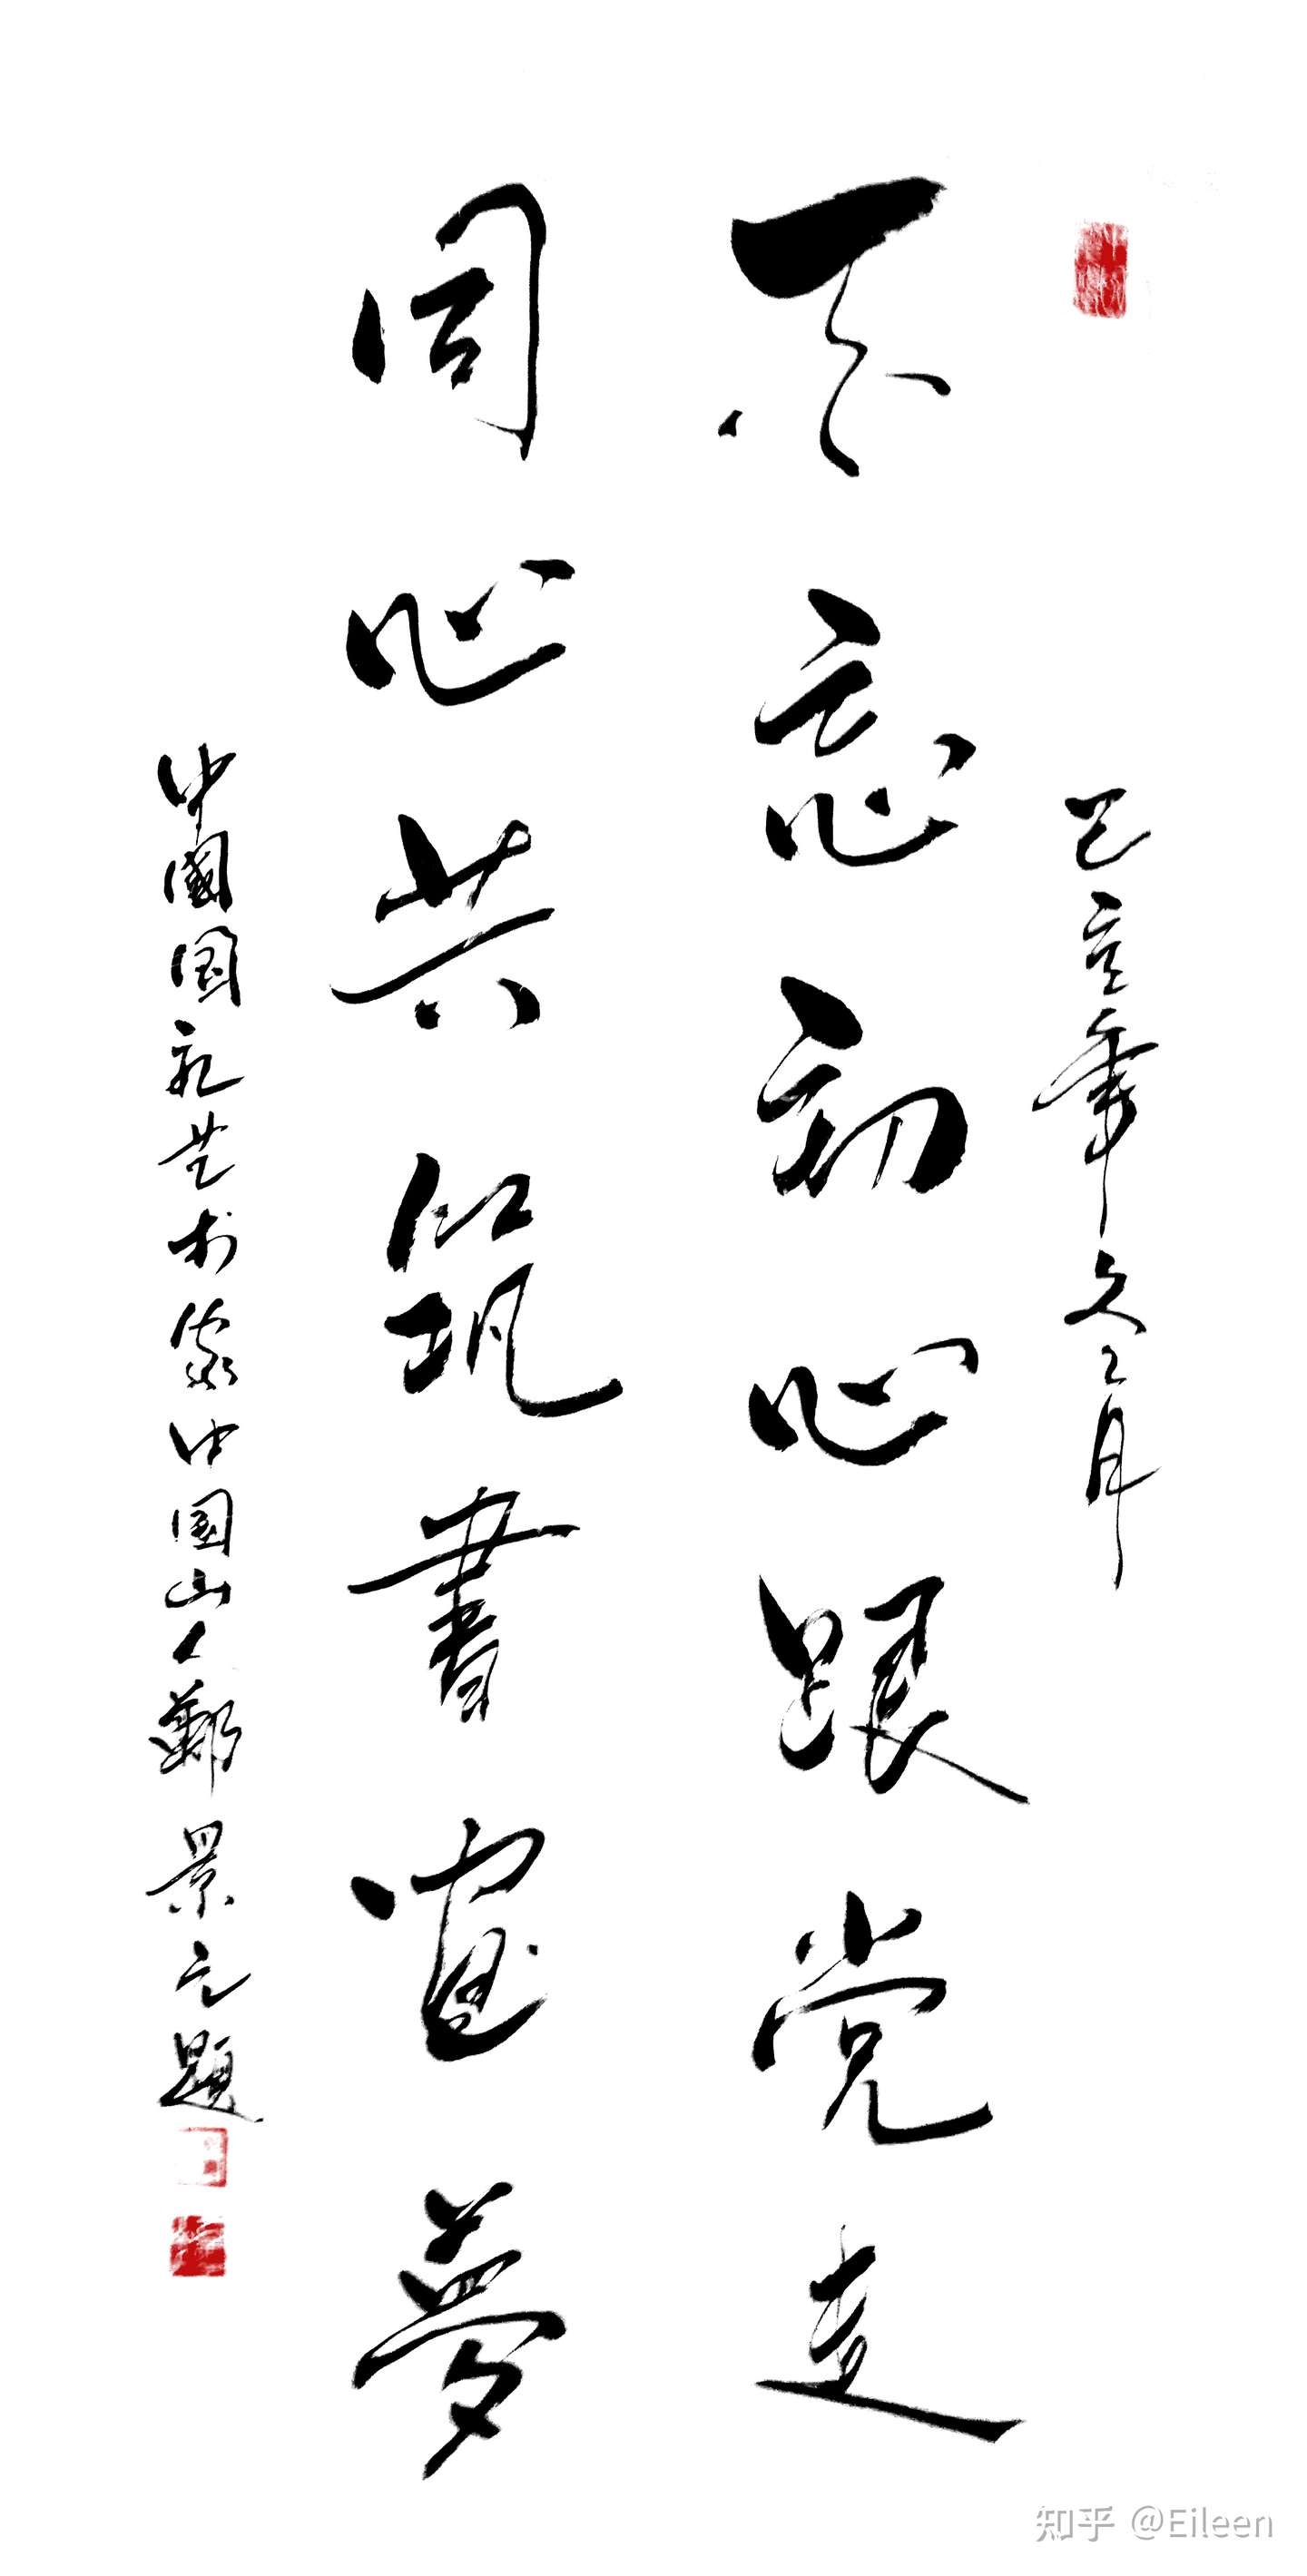 己亥年冬月
不忘初心跟党走
同心共筑書畫夢
中國国礼艺术家中国山人鄭景元題
知乎 @Eileen